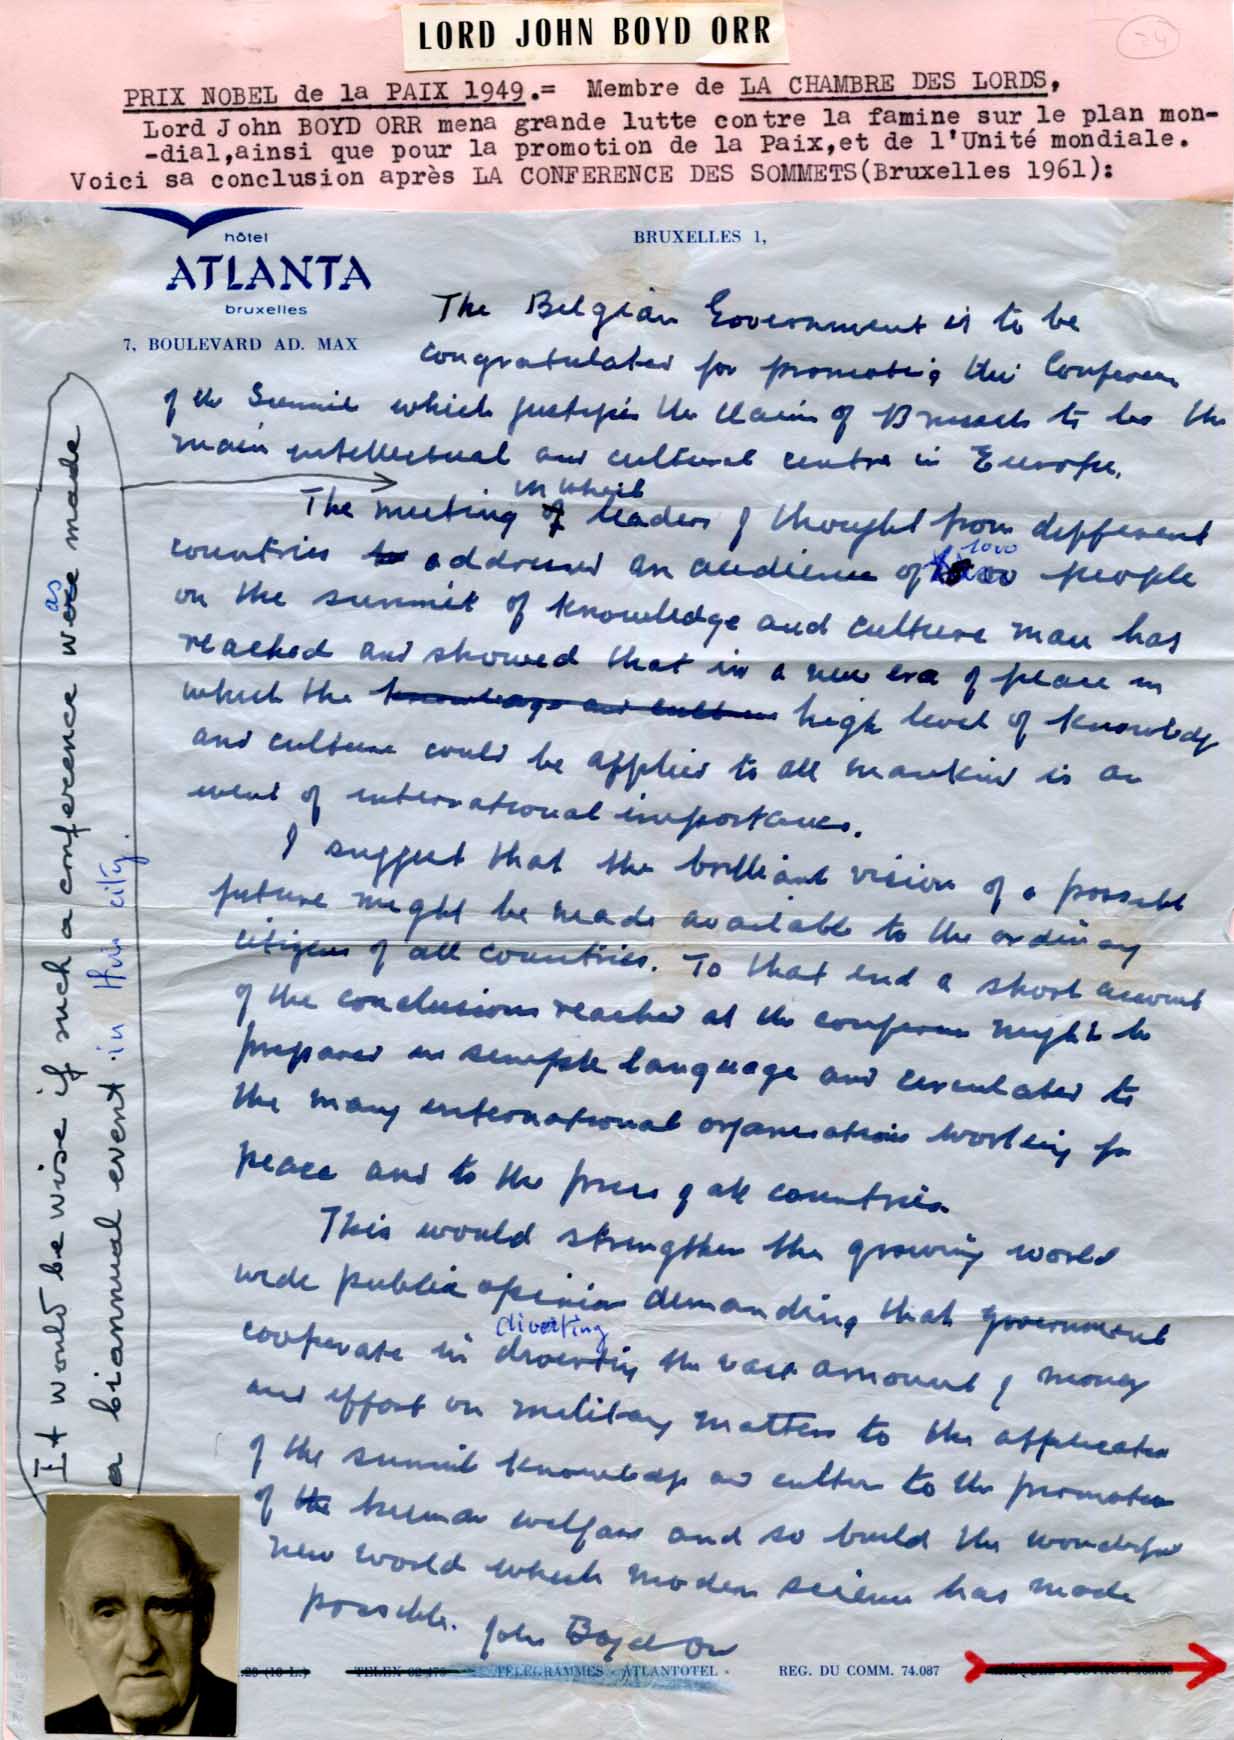 LORD JOHN BOYD ORR
24
PRIX NOBEL de la PAIX 1949.= Membre de LA CHAMBRE DES LORDS,
Lord John BOYD ORR mena grande lutte contre la famine sur le plan mon-
-dial,ainsi que pour la promotion de la Paix,et de l'Unité mondiale.
Voici sa conclusion après LA CONFERENCE DES SOMMETS(Bruxelles 1961):
hôtel
ATLANTA
bruxelles
7, BOULEVARD AD. MAX
BRUXELLES 1,
The Belgian Government is to be
congratulated for promoting this Conference
of the Summit which justifies the claim of Brussels to be the
main intellectual and cultural centre in Europe.
It would be wise if such a conference were as made
a biannual event in this city.
in which
The meeting of leaders of thought from different
1000
countries to addressed an audience of people
on the summit of knowledge and culture man has
reached and showed that in a new era of peace in
which the knowledge and culture high level of knowledge
and culture could be applied to all mankind is an
event of international importance.
I suggest that the brilliant vision of a possible
future might be made available to the ordinary
citizens of all countries. To that end a short account
of the conclusions reached at the conference might be
prepared in simple language and circulated to
the many international organisations working for
peace and to the press of all countries.
This would strengthen the growing world
wide public opinion demanding that government
diverting
cooperate in diverting the vast amount of money
and effort on military matters to the application
of the summit knowledge and culture to the promotion
of the human welfare and so build the wonderful
new world which modern science has made
possible. John Boyd Orr
.29 (10 L.) TELEX 02-475 TELEGRAMMES « ATLANTOTEL » REG. DU COMM. 74.087